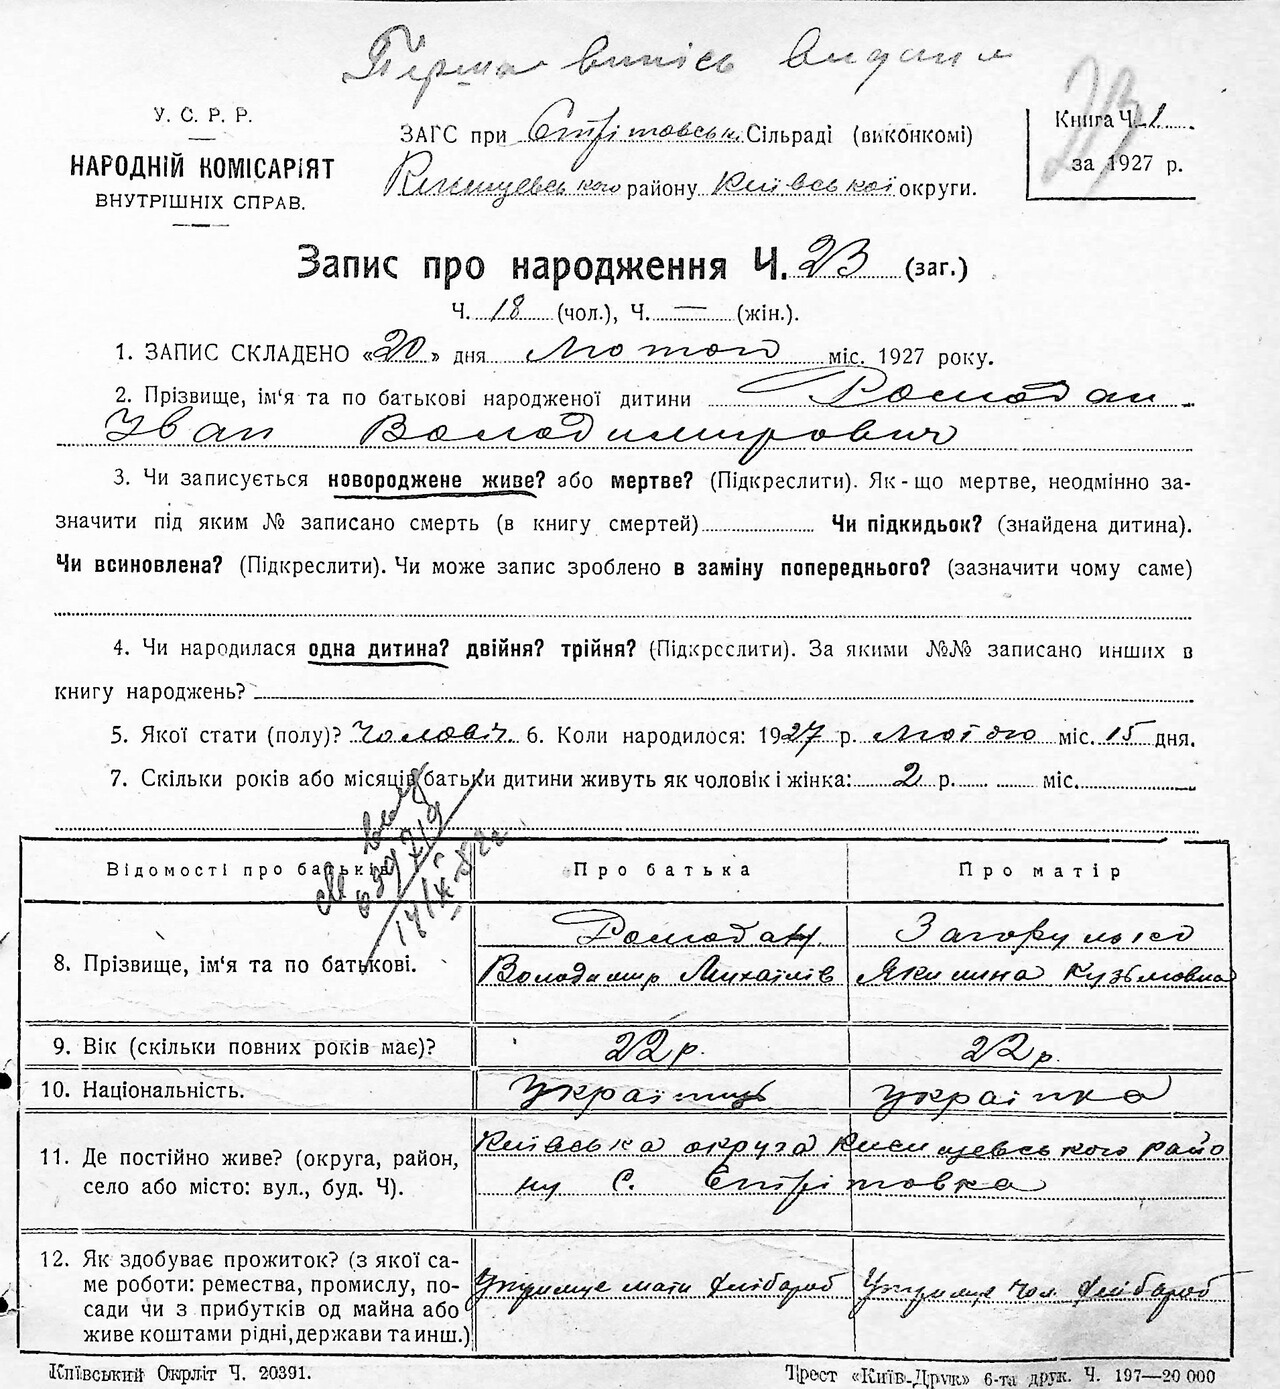 Перша випісь видана
У. С. Р. Р.
НАРОДНІЙ КОМІСАРІЯТ
ВНУТРІШНІХ СПРАВ.
ЗАГС при Стрітовськ. Сільраді (виконкомі)
району Київської округи.
23
Книга Ч. 1
за 1927 р.
Запис про народження Ч. 23 (заг.)
Ч. 18 (чол.), Ч. — (жін.).
1. ЗАПИС СКЛАДЕНО «20» дня Лютого міс. 1927 року.
2. Прізвище, ім‘я та по батькові народженої дитини Ромодан
Іван Володимирович
3. Чи записується новороджене живе? або мертве? (Підкреслити). Як-що мертве, неодмінно за-
значити під яким № записано смерть (в книгу смертей) Чи підкидьок? (знайдена дитина).
Чи всиновлена? (Підкреслити). Чи може запис зроблено в заміну попереднього? (зазначити чому саме)
4. Чи народилася одна дитина? двійня? трійня? (Підкреслити). За якими №№ записано инших в
книгу народжень?
5. Якої стати (полу)? Чоловіч. 6. Коли народилося: 1927 р. Лютого міс. 15 дня.
7. Скільки років або місяців батьки дитини живуть як чоловік і жінка: 2 р. міс.
Відомості про батьків Про батька Про матір
8. Прізвище, ім‘я та по батькові. Ромодан Загорулько
Володимир Михайлів Якилина Кузьмовна
9. Вік (скільки повних років має)? 22 р. 22 р.
10. Національність. Українець українка
11. Де постійно живе? (округа, район, Київська округа району
село або місто: вул., буд. Ч). с. Стрітовка
12. Як здобуває прожиток? (з якої са-
ме роботи: ремества, промислу, по- мати хлібароб чол. хлібароб
сади чи з прибутків од майна або
живе коштами рідні, держави та инш.)
Київський Окрліт Ч. 20391.
Трест «Київ-Друк» 6-та друк. Ч. 197—20 000